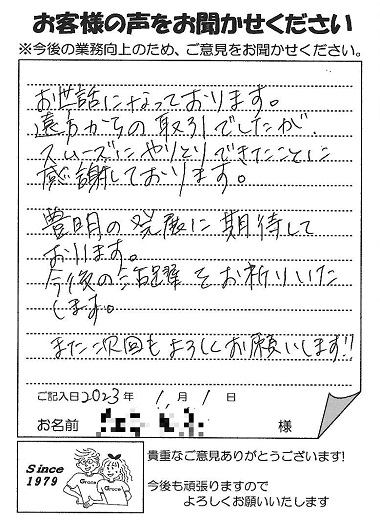 お客様の声をお聞かせください
※今後の業務向上のため、ご意見をお聞かせください。
お世話になっております。
遠方からの取引でしたが、
スムーズにやりとりできたことに
感謝しております。
豊明の発展に期待して
おります。
今後の活躍をお祈りいた
します。
また次回もよろしくお願いします!!
ご記入日2023年 11月 1日
お名前 様
Since
1979
Grace
Grace
貴重なご意見ありがとうございます!
今後も頑張りますので
よろしくお願いいたします